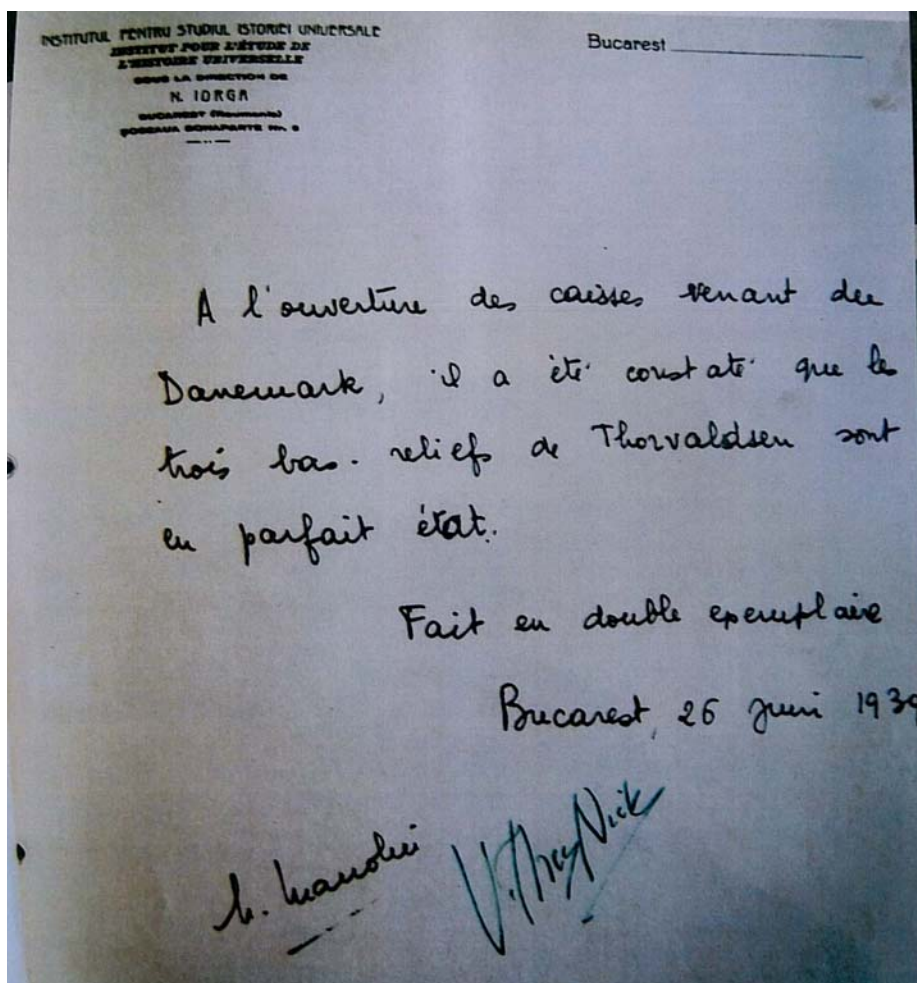 INSTITUTUL PENTRU STUDIUL ISTORIEI UNIVERSALE
INSTITUT POUR L'ÉTUDE DE
L'HISTOIRE UNIVERSELLE
SOUS LA DIRECTION DE
N. IORGA
BUCAREST (Roumanie)
ȘOSEAUA BONAPARTE No. 6
Bucarest
A l'ouverture des caisses venant du
Danemark, il a été constaté que les
trois bas-reliefs de Thorvaldsen sont
en parfait état.
Fait en double exemplaire
Bucarest, 26 juin 1939